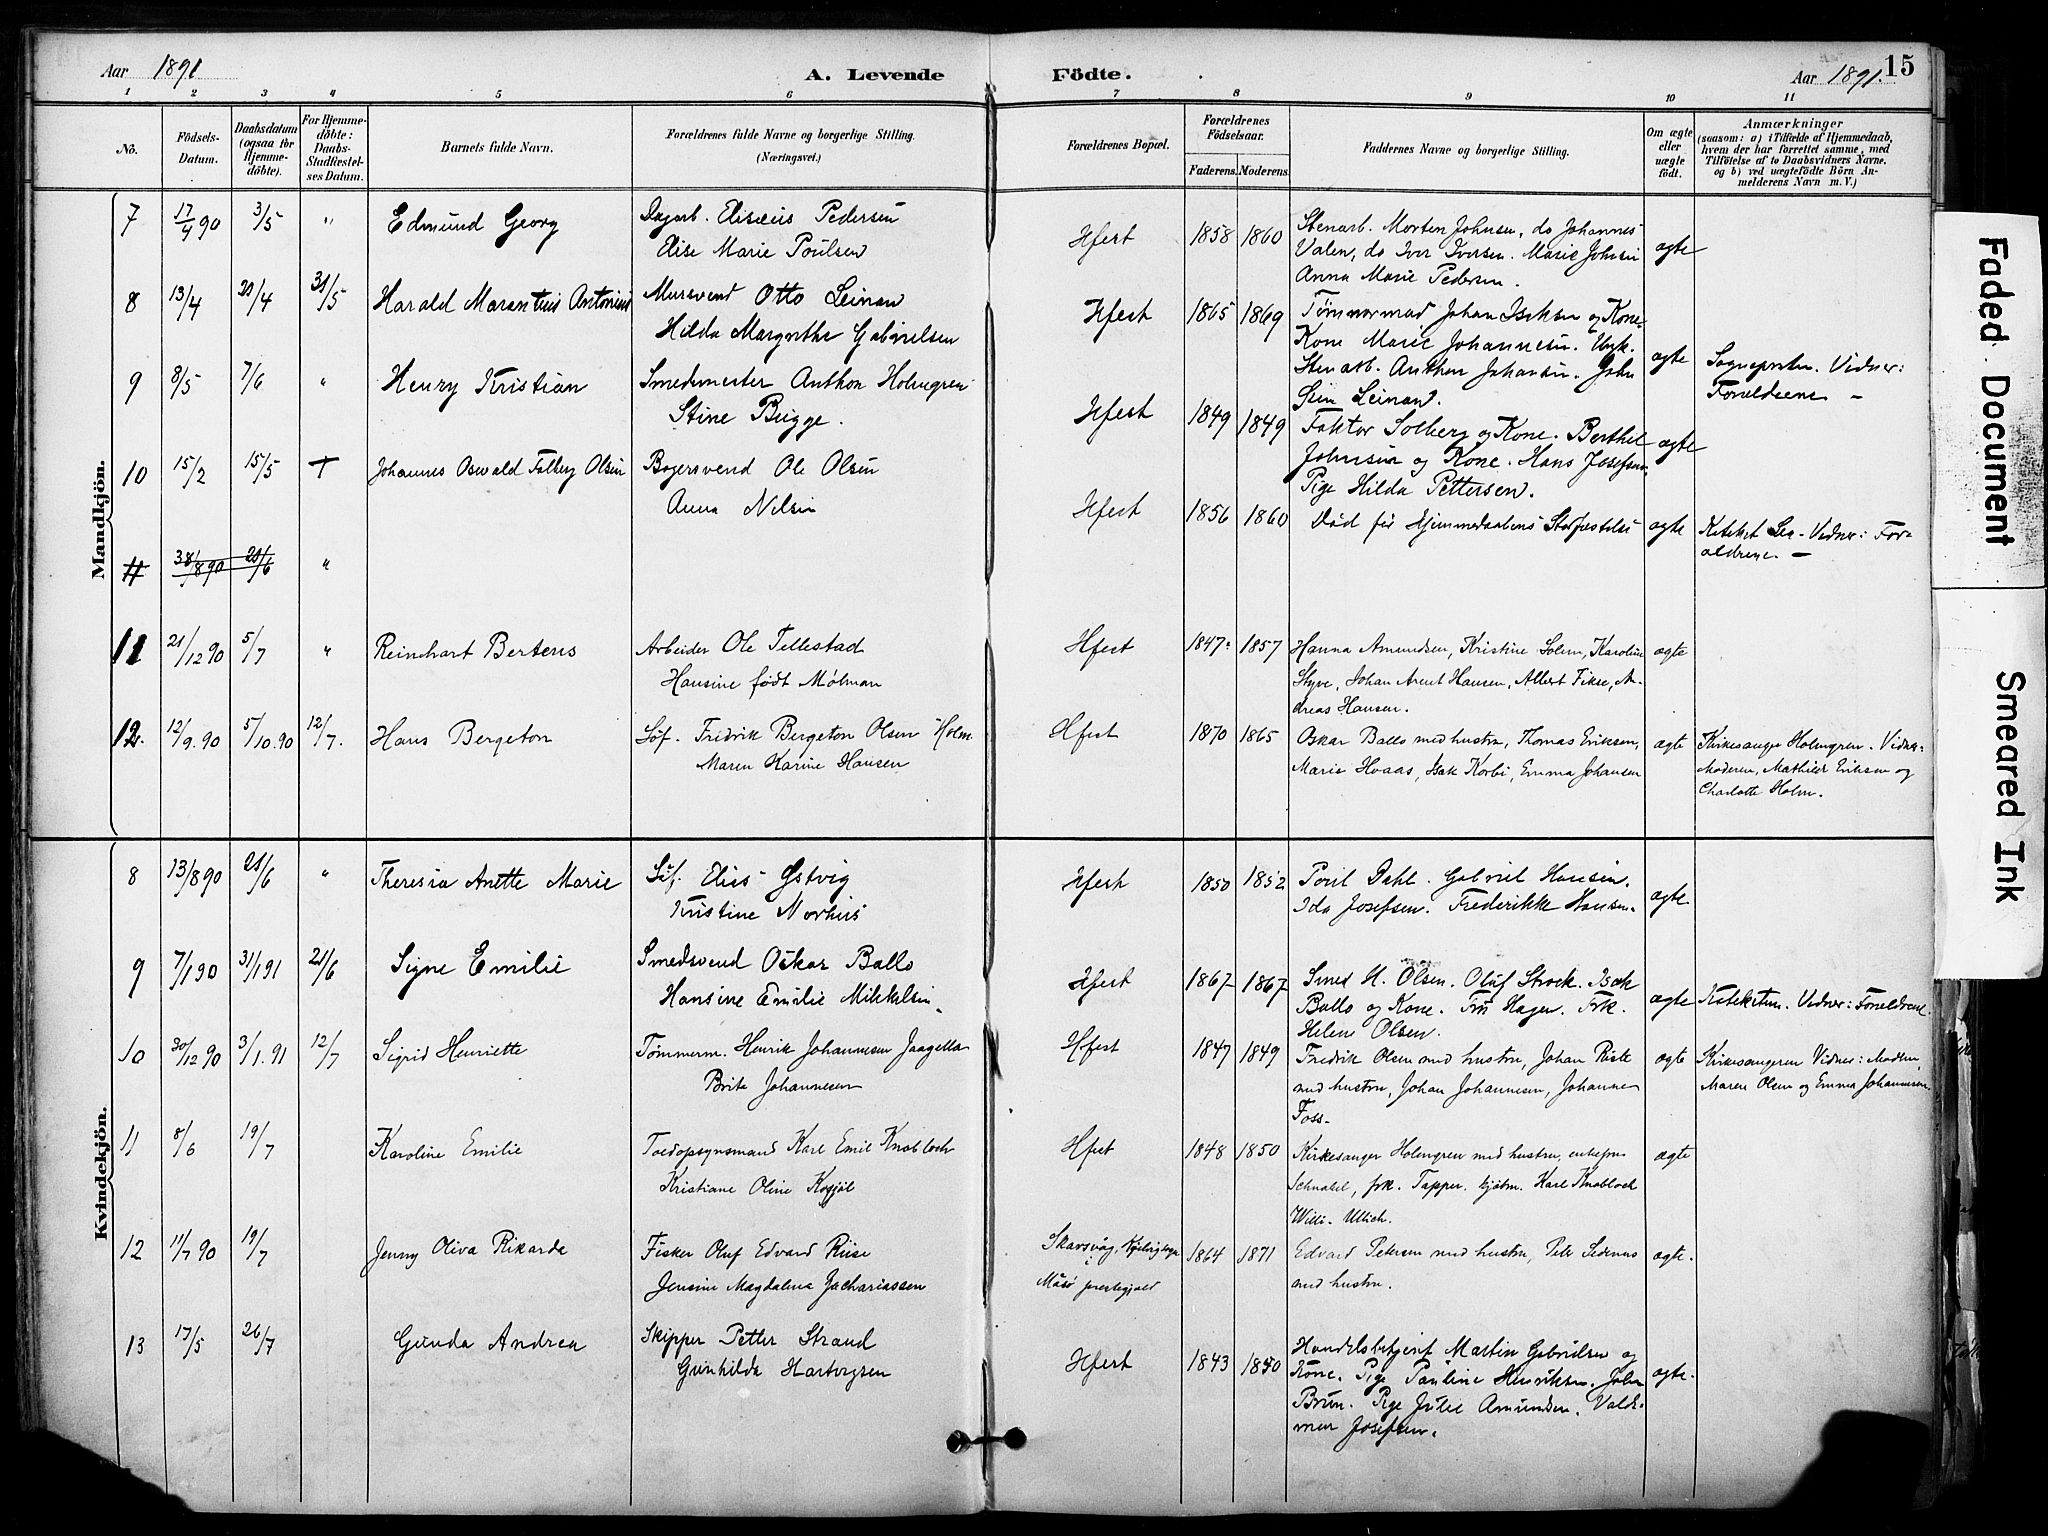 Aar 1891
A. Levende Födte.
Aar 1891.
15
1 2 3 4 5 6 7 8 9 10 11
No.
Födsels-Datum.
Daabsdatum (ogsaa for Hjemme-döbte).
For Hjemme-döbte: Daabs-Stadfæstel-ses Datum.
Barnets fulde Navn.
Forældrenes fulde Navne og borgerlige Stilling.
(Næringsvei.)
Forældrenes Bopæl.
Forældrenes Födselsaar.
Faderens. Moderens.
Faddernes Navne og borgerlige Stilling.
Om ægte eller uægte födt.
Anmærkninger
(saasom: a) i Tilfælde af Hjemmedaab,
hvem der har forrettet samme, med
Tilföielse af to Daabsvidners Navne,
og b) ved uægtefödte Börn An-
melderens Navn m. V.)
Mandkjön.
7 17/4 90 3/5 " Edmund Georg
Dagarb. Elisæus Pedersen
Elise Marie Poulsen
Hfest 1858 1860
Stenarb. Morten Johnsen, do Johannes
Valen, do Iver Iversen. Marie Johnsen
Anna Marie Pedersen.
ægte
8 13/4 21/4 31/5 Harald Marentius Antonius
Mursvend Otto Leinan
Hilda Margrethe Gabrielsen
Hfest 1865 1869
Tømmermand Johan Isaksen og Kone.
Kone Marie Johannesen. Ungk.
Stenarb. Anthon Johansen. John
Leinan.
ægte
Sogneprsten. Vidner:
Forældrene –
9 8/5 7/6 " Henry Kristian
Smedmester Anthon Holmgren
Stine Bugge.
Hfest 1849 1849
Faktor Solberg og Kone. Berthel
Johnsen og Kone. Hans Josefsen.
Pige Hilda Pettersen.
ægte
10 15/2 15/5 + Johannes Oswald Folberg Olsen
Bagersvend Ole Olsen
Anna Nilsen
Hfest 1856 1860
Død før Hjemmedaabens Stadfæstelse
ægte
Kateket Lea – Vidner: For-
ældrene. –
11 8/90 21/6 "
11 21/12 90 5/7 " Reinhart Bertens
Arbeider Ole Tellestad
Hansine født Mølman
Hfest 1847 1857
Hanna Amundsen, Kristine Solem, Karoline
Styve, Johan Arent Hansen, Albert Fikse, An-
dreas Hansen.
ægte
12. 12/9.90 5/10.90 12/7. Hans Bergeton
Søf. Fredrik Bergeton Olsen Holm
Maren Karine Hansen
Hfest 1870 1865
Oskar Ballo med hustru, Thomas Eriksen,
Marie Hvaas, Isak Korbi, Emma Johansen
ægte
Kirkesanger Holmgren. Vidner:
Moderen, Mathias Eriksen og
Charlotte Holm.
Kvindekjön.
8 13/8 90 21/6 " Theresia Anette Marie
Søf. Elias Ystvig
Kristine Norhus
Hfest 1850 1852
Poul Dahl. Gabriel Hansen.
Ida Josefsen. Frederikke Hansen.
ægte
9 7/1 90 31/1 91 21/6 Signe Emilie
Smedsvend Oskar Ballo
Hansine Emilie Mikkelsen
Hfest 1867 1867
Smed H. Olsen. Oluf Strock. Isak
Ballo og Kone. Fru Hagen. Frk.
Helene Olsen.
ægte
Kateketen. Vidner: Forældrene.
10 30/12 90 3/1.91 12/7 Sigrid Henriette
Tømmerm. Henrik Johannesen Jaagetta
Brita Johannesen
Hfest 1847 1849
Fredrik Olsen med hustru, Johan Riste
med hustru, Johan Johannesen, Johannes
Foss.
ægte
Kirkesangeren Vidner: Moderen,
Maren Olsen og Emma Johannesen.
11 8/6 19/7 Karoline Emilie
Toldopsynsmand Karl Emil Knobloch
Kristiane Oline
Hfest 1848 1850
Kirkesanger Holmgren med hustru, enkefru
Schnabel, frk. Tapper. kjøbm. Karl Knobloch
Willi. Ullich.
ægte
12 11/7 90 19/7 Jenny Oliva Rikarda
Fisker Oluf Edvard Riise
Jensine Magdalena Zachariassen
Skarsvåg,
i
Måsø prestegjæld
1864 1871
Edvard Petersen med hustru, Peter
med hustru.
ægte.
13 17/5 26/7 Gunda Andrea
Skipper Petter Strand
Gunhilda Hartvigsen
Hfest 1843 1850
Handelsbetjent Martin Gabrielsen og
Kone. Pige Pauline Henriksen. John
Brun. Pige Julie Amundsen. Valde-
mar Josefsen.
ægte.
Faded Document
Smeared Ink